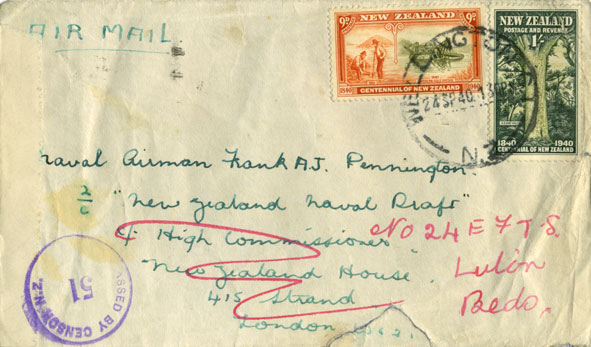 AIR MAIL
9D NEW ZEALAND 9D
1840 1940
CENTENNIAL OF NEW ZEALAND
NEW ZEALAND
POSTAGE AND REVENUE
1/-
1840 1940
CENTENNIAL OF NEW ZEALAND
WELLINGTON
24 SP 40
N.Z.
Naval Airman Frank A.J. Pennington.
2/5
"New Zealand Naval Draft"
c/- High Commissioner
New Zealand House.
415 Strand
London W.C.2.
No 24 E F T.S.
Luton
Beds.
PASSED BY CENSOR N.Z.
51